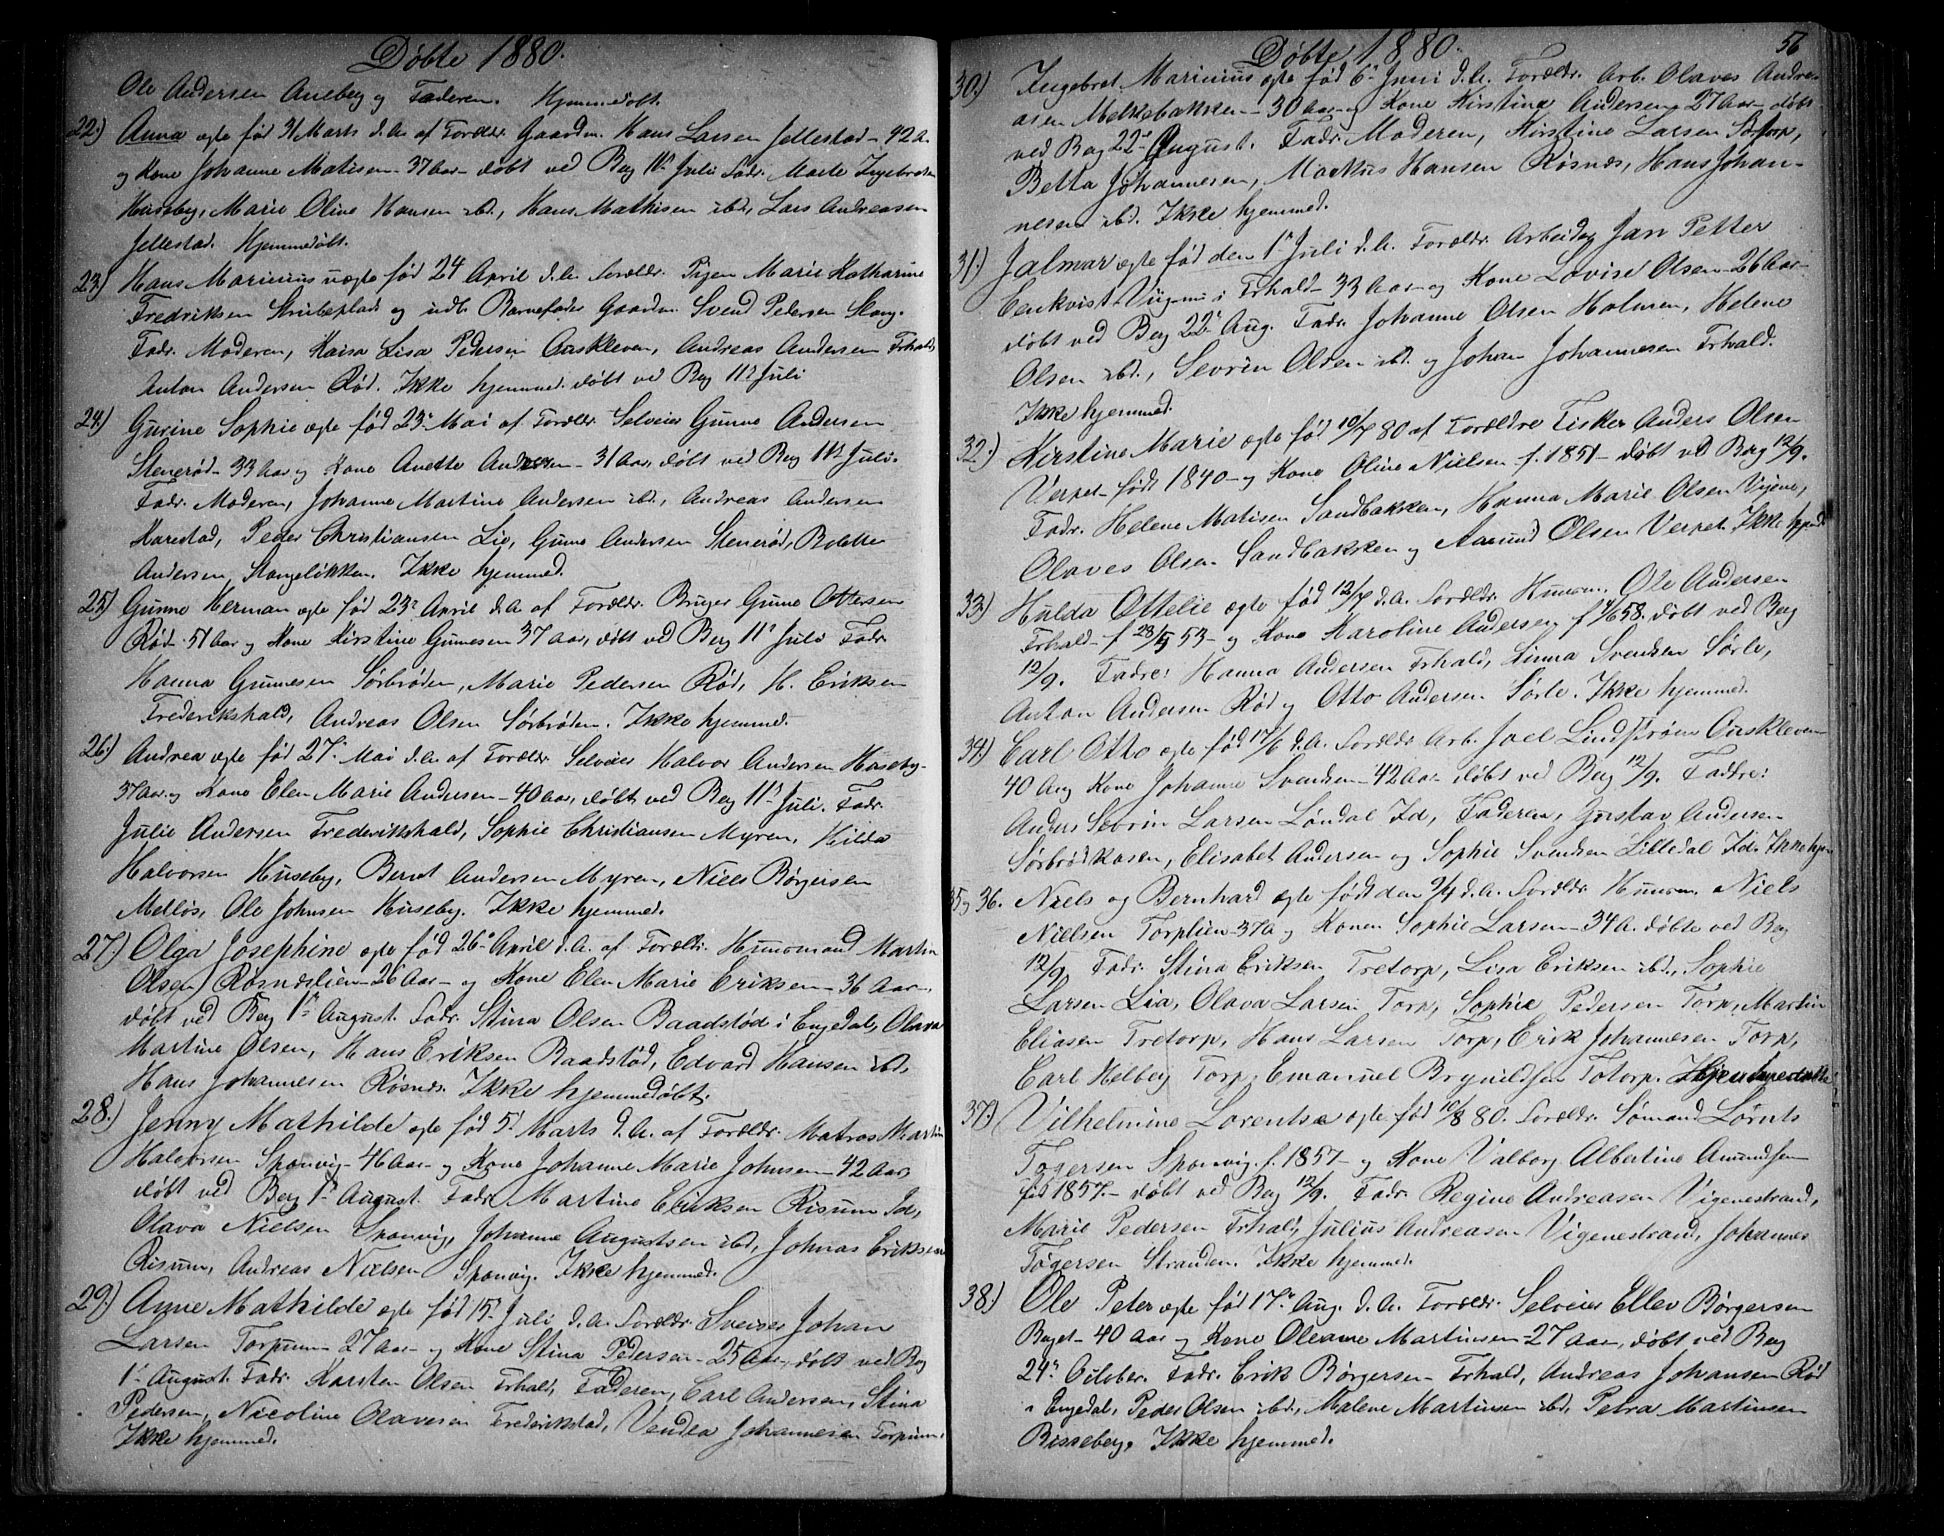 Döbte 1880.
Ole Andersen Aneberg og Faderen. Hjemmedöbt.
22.) Anna ægte fød 31 Marts d.A. af Foreldr. Gaardm. Hans Larsen Jellestad – 42 A.
og Kone Johanne Matisen – 37 Aar – döbt ved Berg 11te Juli Fadr. Marte Ingebretsen
Huseby, Marie Oline Hansen ibd, Hans Mathisen ibd, Lars Andreasen
Jellestad. Hjemmedöbt.
23.) Hans Marinius uægte fød 24 April d.A. Foreldr. Pigen Marie Katharine
Fredriksen Strubeplads og udl. Barnefader Gaardm. Svend Pedersen Stang.
Fadr. Moderen, Kaisa Lisa Pedersen Aaskleven, Andreas Andersen Trhald,
Anton Andersen Rød. Ikke hjemmed. döbt ved Berg 11te Juli
24.) Gurine Sophie ægte fød 23de Mai af Foreldr. Selveier Gunne Andersen
Stenerød – 33 Aar og Kone Anette Andersen – 31 Aar, döbt ved Berg 11te Juli.
Fadr. Moderen, Johanne Martine Andersen ibd., Andreas Andersen
Karestad, Peder Christiansen Lie, Gunne Andersen Stenerød, Bolette
Andersen Stangeløkken. Ikke hjemmed.
25) Gunne Herman ægte fød 23de April d.A. af Foreldr. Bruger Gunne Ottersen
Rød – 51 Aar og Kone Kirstine Gunnesen 37 Aar, döbt ved Berg 11te Juli Fadr.
Hanna Gunnesen Sørbrøden, Marie Pedersen Rød, H. Eriksen
Frederikshald, Andreas Olsen Sørbrøden. Ikke hjemmed.
26.) Andrea ægte fød 27de Mai d.A. af Foreldr. Selveier Halvor Andersen Huseby –
37 Aar og Kone Elen Marie Andersen – 40 Aar, döbt ved Berg 11te Juli. Fadr.
Julie Andersen Frederikshald, Sophie Christiansen Myren, Hilda
Halvorsen Huseby, Bernt Andersen Myren, Niels Börgersen
Melløs, Ole Johnsen Huseby. Ikke hjemmed.
27.) Olga Josephine ægte fød 26de April d.A. af Foreldr. Husmand Martin
Olsen Røsneslien – 26 Aar – og Kone Elen Marie Eriksen – 36 Aar –
döbt ved Berg 1te August. Fadr. Stina Olsen Baadstød i Engedal, Olava
Martine Olsen, Hans Eriksen Baadstød, Edvard Hansen ibd.
Hans Johannesen Røsnes. Ikke hjemmedöbt.
28.) Jenny Mathilde ægte fød 5te Marts d.A. af Foreldr. Matros Martin
Halvorsen Sponvig – 46 Aar – og Kone Johanne Marie Johnsen – 42 Aar,
döbt ved Berg 1te August. Fadr. Martine Eriksen Risum Id,
Olava Nielsen Sponvig, Johanne Augustsen ibd, Johnas Eriksen
Risum, Andreas Nielsen Sponvig. Ikke hjemmed.
29.) Anne Mathilde ægte fød 15de Juli d.A. Foreldr. Sveiser Johan
Larsen Torpum – 27 Aar – og Kone Stina Pedersen – 25 Aar, döbt ved Berg
1te August. Fadr. Karsten Olsen Trhald, Faderen, Carl Andersen, Stina
Pedersen, Nicoline Olavesen Frederikstad, Vendla Johannesen Torpum.
Ikke hjemmed.
Döbte 1880.
56
30.) Ingebret Marinius ægte fød 6te Juni d.A. Foreldr. Arb. Olaves Andre-
asen Melkebakken – 30 Aar – og Kone Kirstine Andersen 27 Aar – döbt
ved Berg 22de August. Fadr. Moderen, Kirstine Larsen Sotorp,
Betta Johannesen, Markus Hansen Røsnes, Hans Johan-
nesen ibd. Ikke hjemmed.
31.) Jalmar ægte fød den 1te Juli d.A. Foreldr. Arbeider Jan Petter
Eenkvist Viigene i Trhald – 33 Aar – og Kone Lovise Olsen – 26 Aar –
döbt ved Berg 22de Aug. Fadr. Johanne Olsen Holmen, Helene
Olsen ibd., Sevrin Olsen ibd. og Johan Johannesen Trhald.
Ikke hjemmed.
32.) Kirstine Marie ægte fød 10/7 80 af Foreldre Fisker Anders Olsen
Verpet – født 1840 – og Kone Oline Nielsen f. 1851 – döbt ved Berg 12/9.
Fadr. Helene Matisen Sandbakken, Hanna Marie Olsen Vigene,
Olaves Olsen Sandbakken og Amund Olsen Verpet. Ikke hjemd.
33.) Hulda Ottelie ægte fød 12/7 d.A. Foreldr. Husm. Ole Andersen
Trhald – f. 23/5 53 – og Kone Karoline Andersen f. 4/6 58. döbt ved Berg
12/9. Fadre: Hanna Andersen Trhald, Linna Svendsen Sørle,
Anton Andersen Rød og Otto Andersen Sørle. Ikke hjemmed.
34.) Carl Otto ægte fød 17/6 d.A. Foreldr. Arb. Joel Lindstrøm Aaskleven
40 Aar og Kone Johanne Svendsen – 42 Aar döbt ved Berg 12/9. Faddre:
Anders Sevrin Larsen Løndal Id, Faderen, Gustav Andersen
Sørbrødkasen, Elisabet Andersen og Sophie Svendsen Lilledal Id. Ikke hjem
35 og 36. Niels og Bernhard ægte født den 9/4 d.A. Foreldr. Husm. Niels
Nielsen Torplien – 37 A og Konen Sophie Larsen – 34 A. döbte ved Berg
12/9 Fadr. Stina Eriksen Tretorp, Lisa Eriksen ibd, Sophie
Larsen Lia, Olava Larsen Torp, Sophie Pedersen Torp, Martin
Eliasen Tretorp, Hans Larsen Torp, Erik Johannesen Torp,
Carl Helberg Torp, Emanuel Brynildsen Totorp. Hjemmedöbte
37.) Vilhelmine Lorentse ægte fød 10/8 80. Foreldr. Sømand Lørnts
Tøgersen Sponvig. f. 1857 – og Kone Valborg Albertine Amundsen
født 1857. – döbt ved Berg 12/9. Fadr. Regine Andreasen Vigenestrand,
Marie Pedersen Trhald, Julius Andreasen Vigenestrand, Johannes
Tøgersen Stranden. Ikke hjemmed.
38.) Ole Peter ægte fød 17de Aug. d.A. Foreldr. Selveier Ellev Börgersen
Berget – 40 Aar og Kone Oleane Martinsen – 27 Aar, döbt ved Berg
24de October. Fadr. Erik Börgersen – Trhald, Andreas Johansen Rød
i Engedal, Peder Olsen ibd, Malene Martinsen ibd, Petra Martinsen
Bisseberg. Ikke hjemmed.